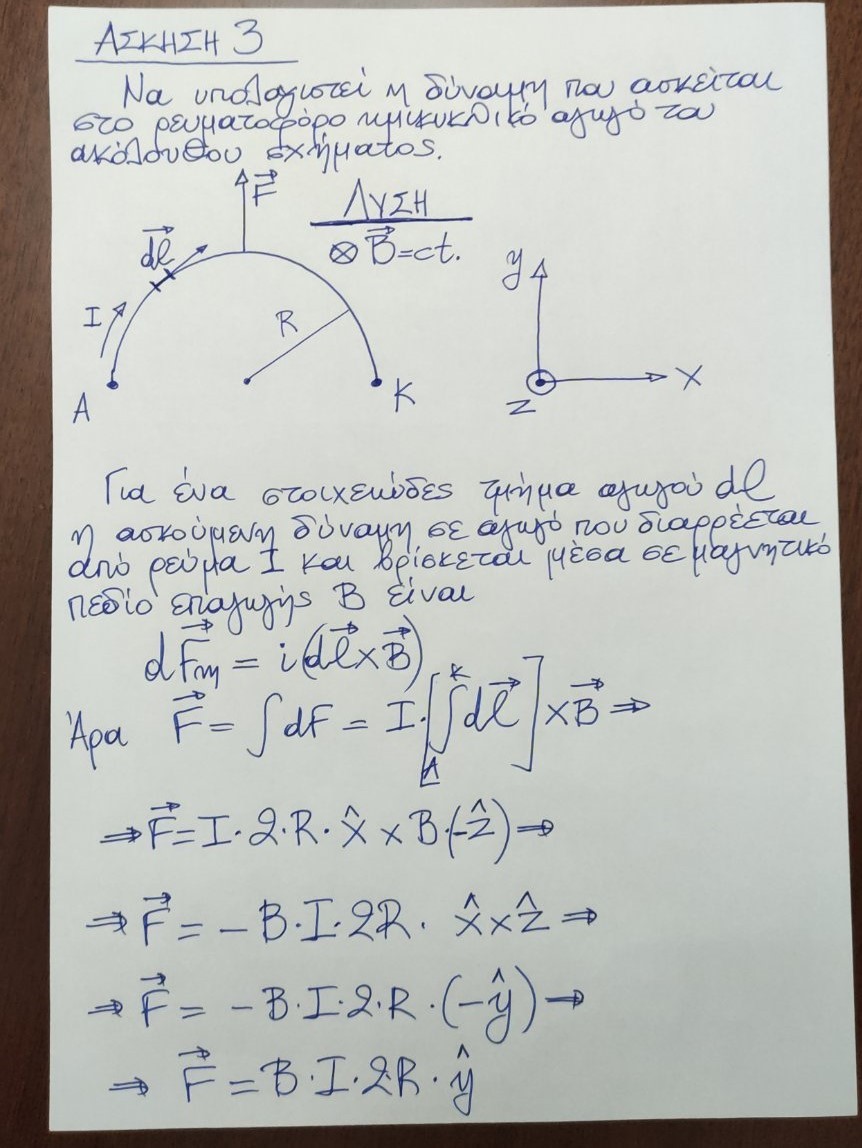 ΑΣΚΗΣΗ 3
Να υπολογιστεί η δύναμη που ασκείται
στο ρευματοφόρο ημικυκλικό αγωγό του
ακόλουθου σχήματος.
F
ΛΥΣΗ
dl
⊗ B=ct.
y
I
R
A
K
x
z
Για ένα στοιχειώδες τμήμα αγωγού dl
η ασκούμενη δύναμη σε αγωγό που διαρρέεται
από ρεύμα I και βρίσκεται μέσα σε μαγνητικό
πεδίο επαγωγής B είναι
dF⃗m = i(dl⃗ x B⃗)
Άρα F⃗ = ∫dF = I·[∫_A^K dl⃗] x B⃗ ⇒
⇒ F⃗ = I·2·R·x̂ x B·(-ẑ) ⇒
⇒ F⃗ = -B·I·2R· x̂ x ẑ ⇒
⇒ F⃗ = -B·I·2·R·(-ŷ) ⇒
⇒ F⃗ = B·I·2R·ŷ